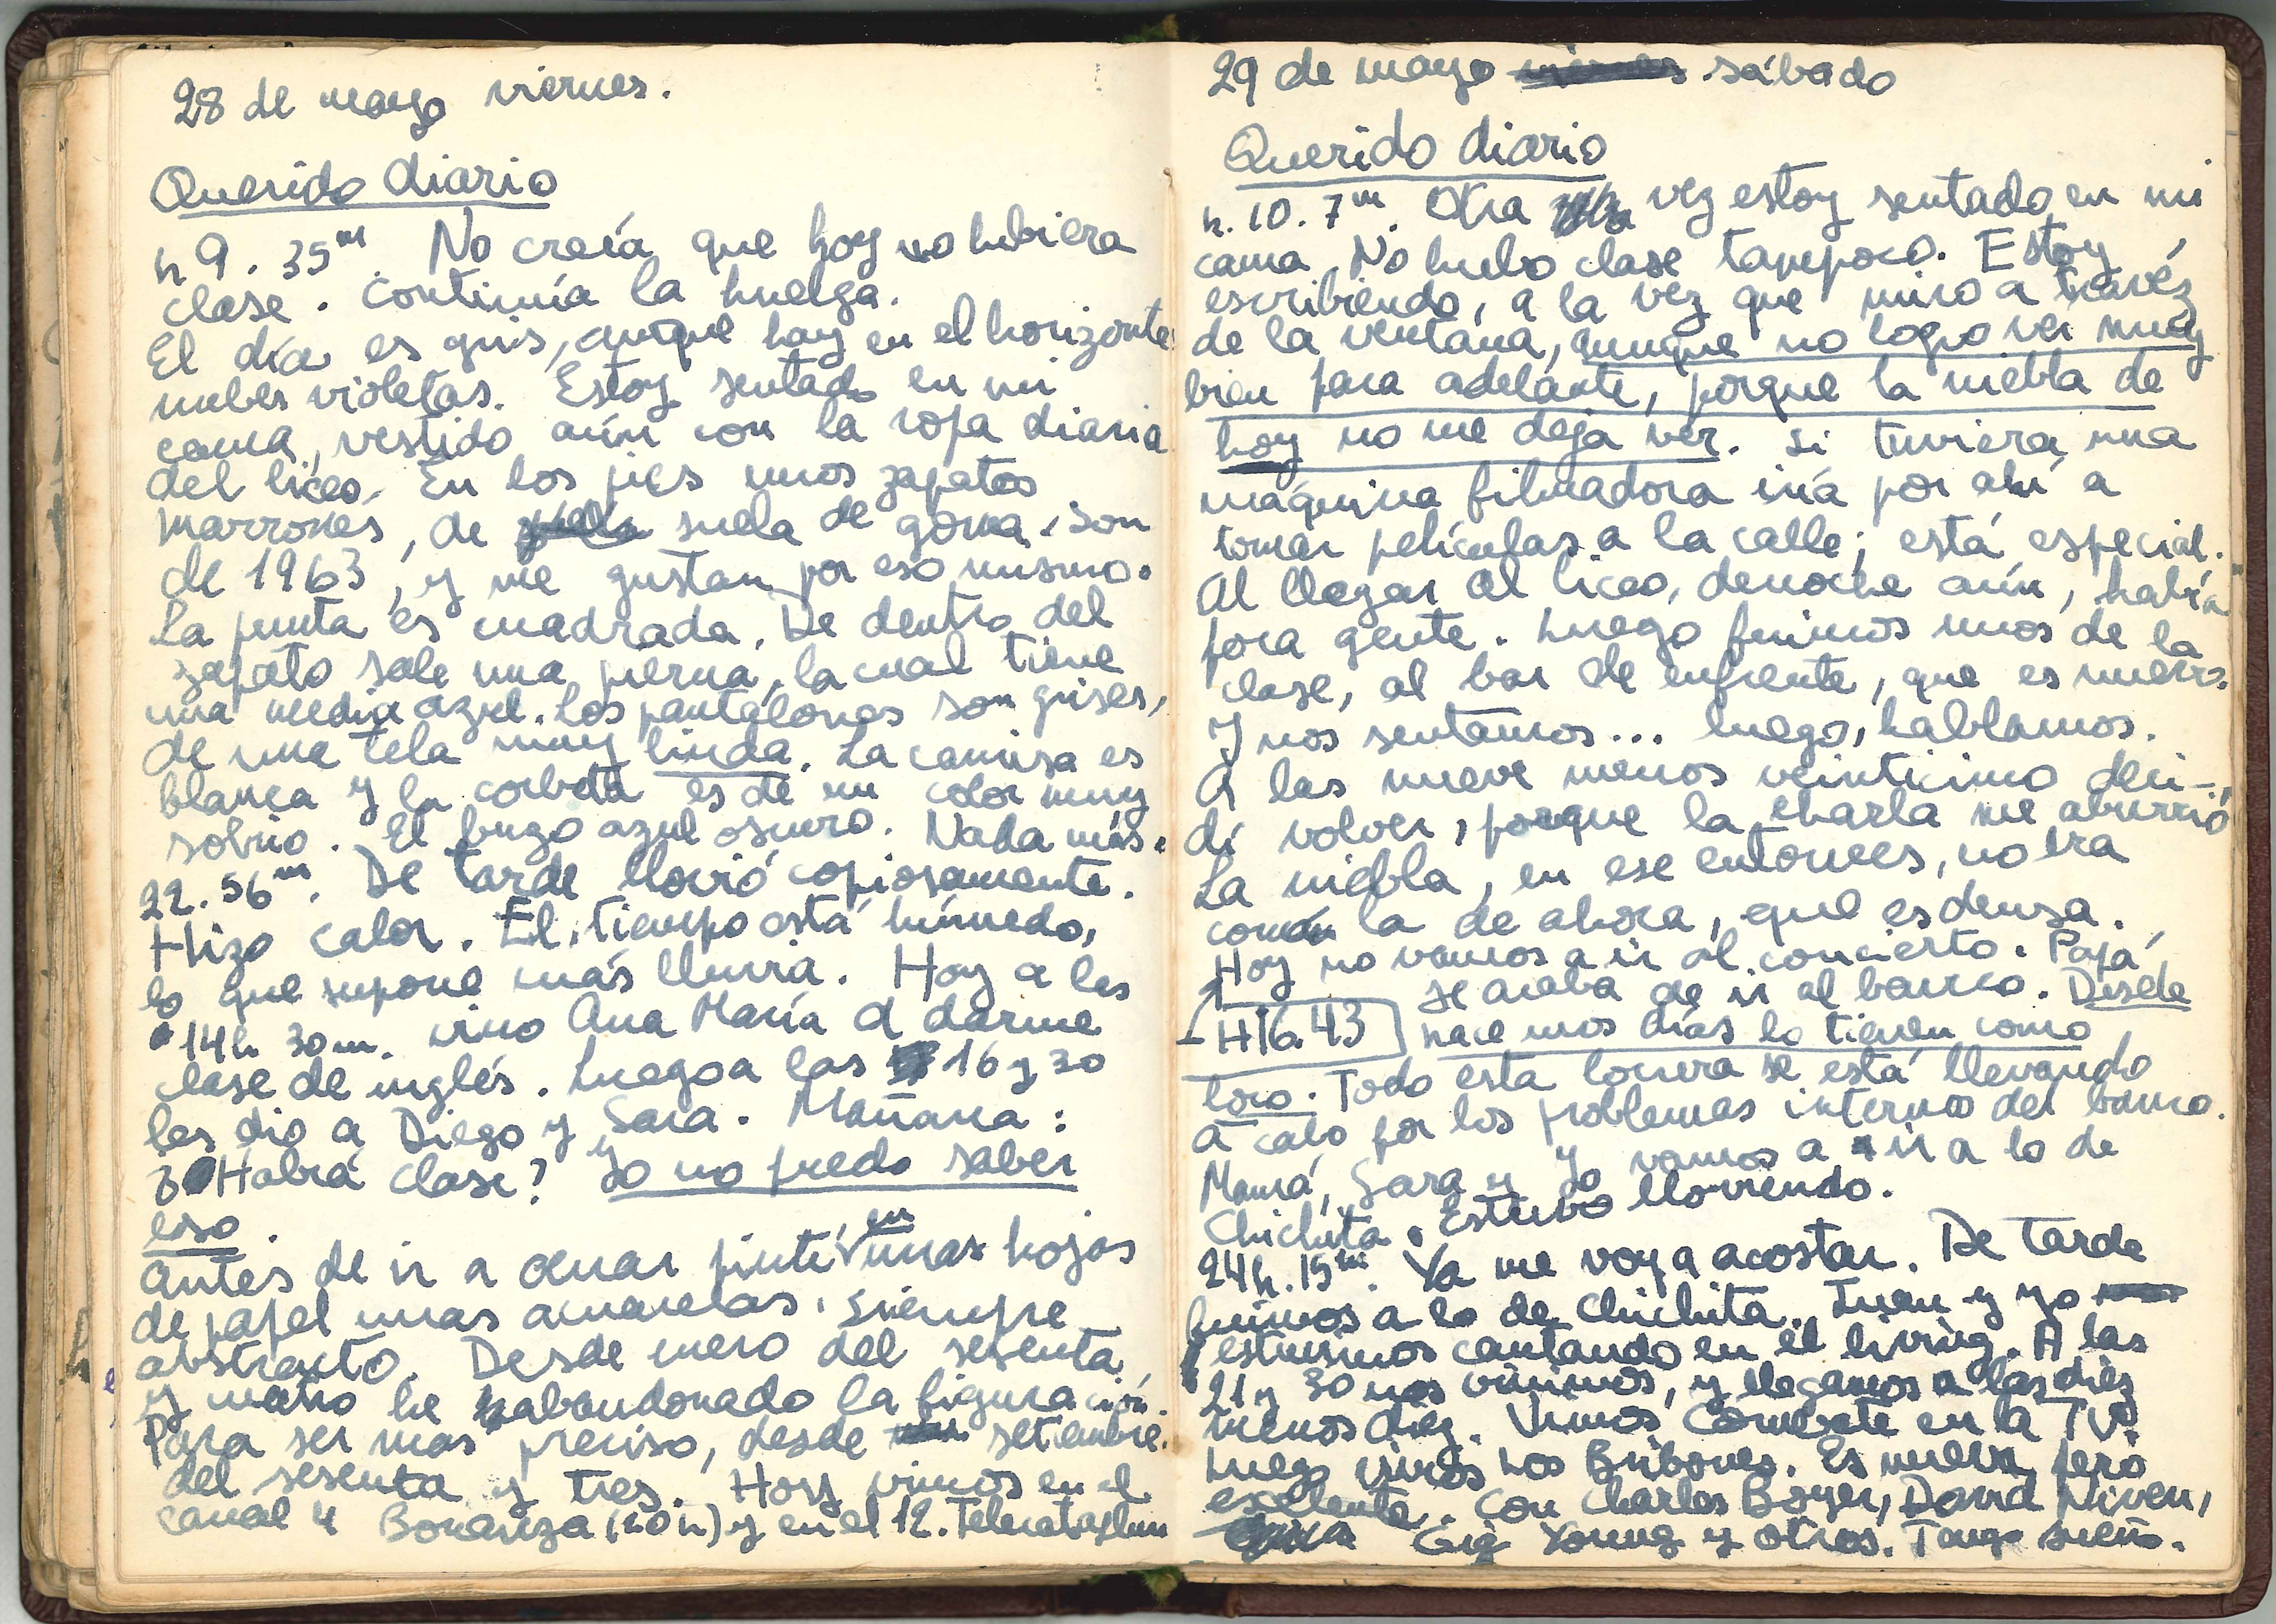 28 de mayo viernes.
Querido diario
h 9. 35m. No creía que hoy no hubiera
clase. Continúa la huelga.
El día es gris, aunque hay en el horizonte
nubes violetas. Estoy sentado en mi
cama, vestido aún con la ropa diaria
del liceo. En los pies unos zapatos
marrones, de suela de goma. Son
de 1963, y me gustan por eso mismo.
La punta es cuadrada. De dentro del
zapato sale una pierna, la cual tiene
una media azul. Los pantalones son grises,
de una tela muy linda. La camisa es
blanca y la corbata es de un color muy
sobrio. El buzo azul oscuro. Nada más.
22. 56m. De tarde llovió copiosamente.
Hizo calor. El tiempo está húmedo,
lo que supone más lluvia. Hoy a las
14h 30m. vino Ana María a darme
clase de inglés. Luego a las 16 y 30
les dio a Diego y Sara. Mañana:
Habrá clase? Yo no puedo saber
eso.
Antes de ir a cenar pinté en unas hojas
de papel unas acuarelas. Siempre
abstracto. Desde enero del sesenta
y cuatro he abandonado la figuración.
Para ser mas preciso, desde setiembre
del sesenta y tres. Hoy vimos en el
canal 4 Bonanza (20 h) y en el 12. Telecataplum
29 de mayo sábado
Querido diario
h. 10. 7m. Otra vez estoy sentado en mi
cama. No hubo clase tampoco. Estoy
escribiendo, a la vez que miro a travéz
de la ventana, aunque no logro ver muy
bien para adelante, porque la niebla de
hoy no me deja ver. Si tuviera una
máquina filmadora iría por ahí a
tomar películas a la calle; está especial.
Al llegar al liceo, denoche aún, había
poca gente. Luego fuimos unos de la
clase, al bar de enfrente, que es nuevo.
Y nos sentamos... luego, hablamos.
A las nueve menos veinticinco deci-
dí volver, porque la charla me aburrió
La niebla, en ese entonces, no era
como la de ahora, que es densa.
Hoy no vamos a ir al concierto. Papá
se acaba de ir al banco. Desde
H16.43 hace unos días lo tienen como
loco. Todo esta locura se está llevando
a cabo por los problemas internos del banco.
Mamá, Sara y yo vamos a ir a lo de
Chichita. Estuvo lloviendo.
24h. 15m. Ya me voy a acostar. De tarde
fuimos a lo de Chichita. Juan y yo
estuvimos cantando en el living. A las
21 y 30 nos vinimos, y llegamos a las diez
menos diez. Vimos Combate en la TV.
Luego vimos Los Bribones. Es nueva pero
exelente. Con Charles Boyer, David Niven,
Gig Young y otros. Tengo sueño.